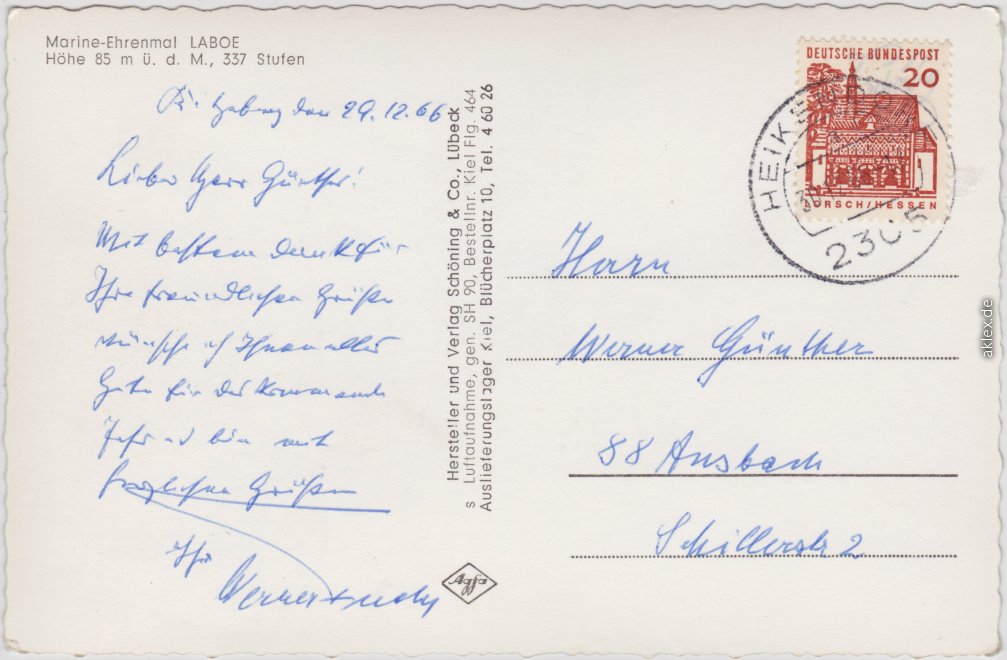 Marine-Ehrenmal LABOE
Höhe 85 m ü. d. M., 337 Stufen
den 29.12.66
Lieber Herr Günther!
Mit bestem Dank für
Ihre freundlichen Grüße
wünsche ich Ihnen alles
Gute für das kommende
Jahr und bin mit
herzlichen Grüßen
Ihr
Werner
Hersteller und Verlag Schöning & Co., Lübeck
s Luftaufnahme, gen. SH 90, Bestellnr. Kiel Flg. 464
Auslieferungslager Kiel, Blücherplatz 10, Tel. 4 60 26
Agfa
DEUTSCHE BUNDESPOST
20
LORSCH/HESSEN
2305
Herrn
Werner Günther
88 Ansbach
Schillerstr 2
aklex.de